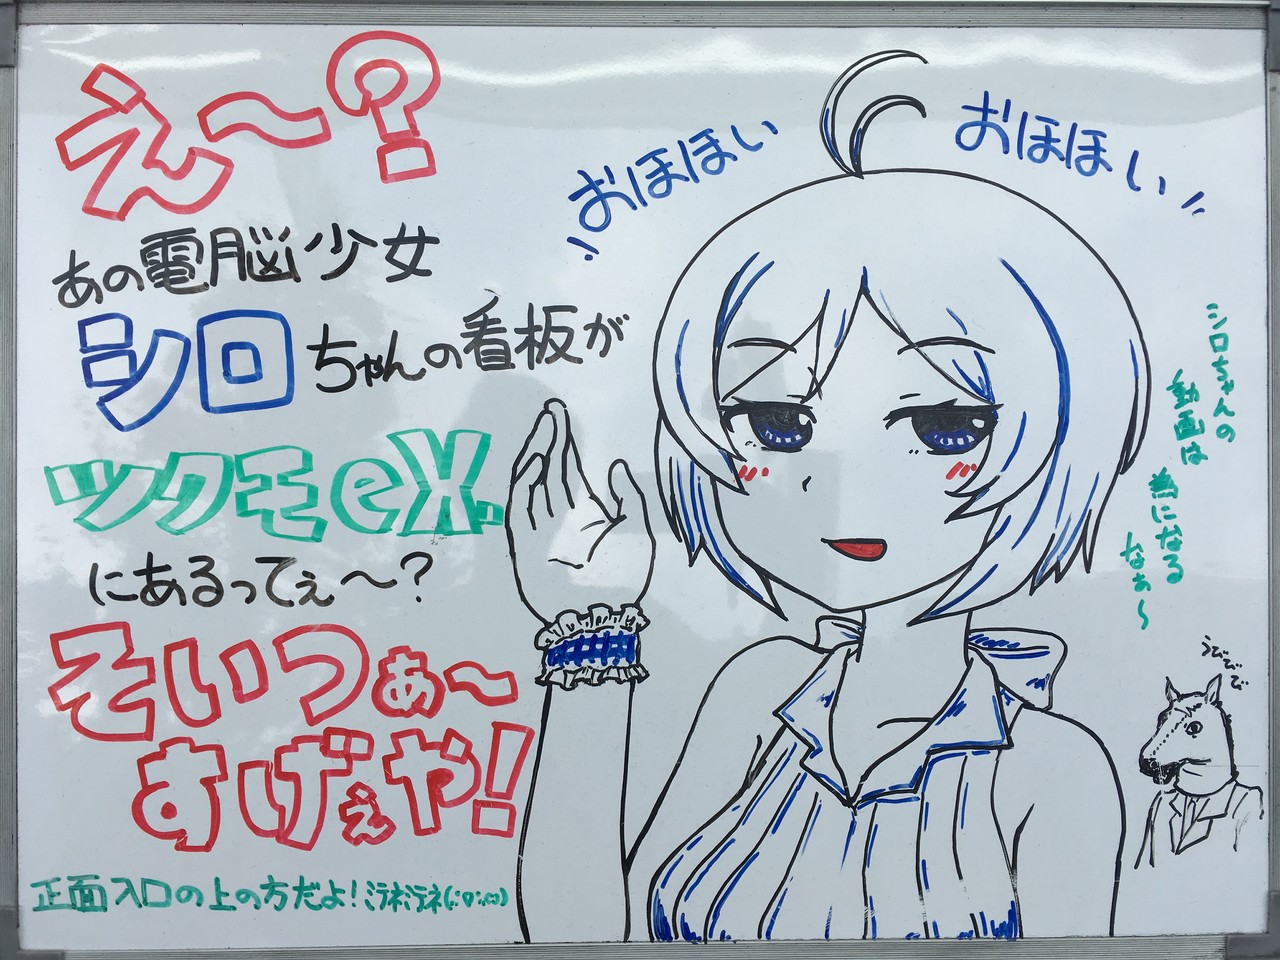 え〜?
あの電脳少女
シロちゃんの看板が
ツクモeX.
にあるってぇ〜?
そいつぁ〜
すげぇや!
正面入口の上の方だよ!ﾐﾃﾈﾐﾃﾈ
おほほい
おほほい
シロちゃんの
動画は
為になる
なぁ〜
うびびび